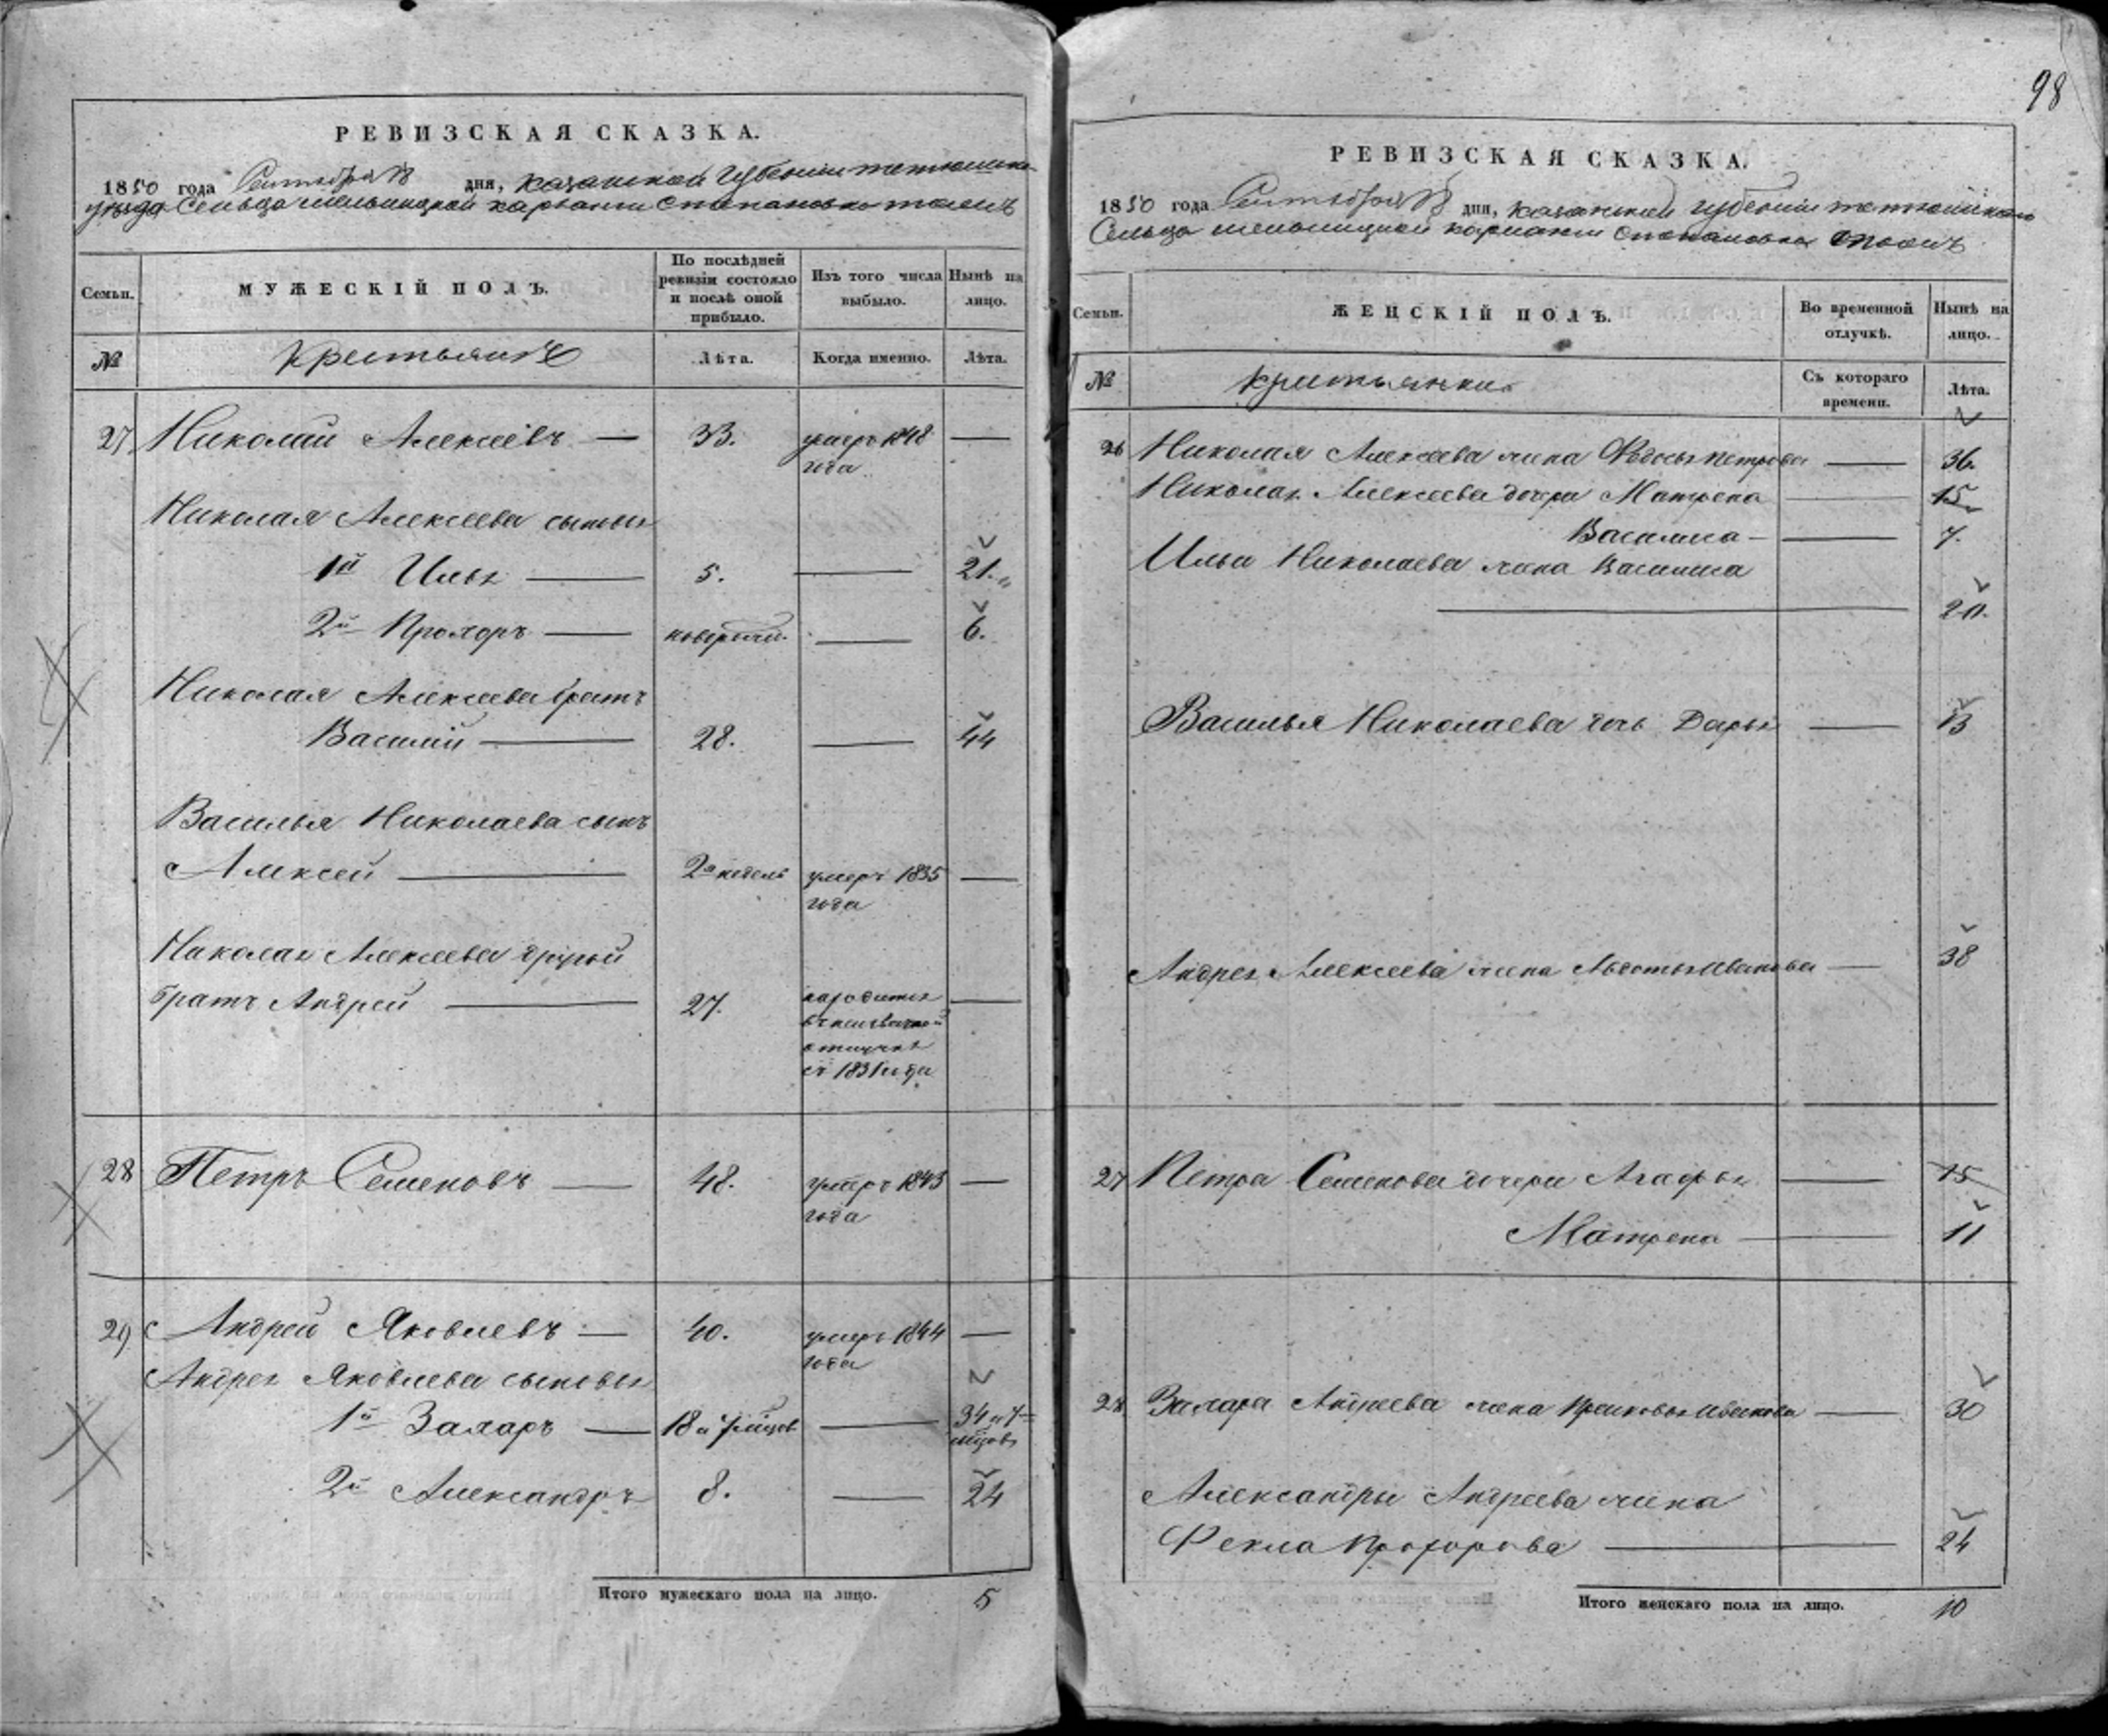 98
РЕВИЗСКАЯ СКАЗКА.
1850 года Сентября дня, Казанской Губернии
уезда Сельца
Семьи.
МУЖЕСКІЙ ПОЛЪ.
По послѣдней ревизіи состояло и послѣ оной прибыло.
Изъ того числа выбыло.
Нынѣ на лицо.
№
Крестьяне
Лѣта.
Когда именно.
Лѣта.
27 Николай Алексеевъ — 33. умеръ 1848 —
года
Николая Алексеева сыновья
1й Илья — 5. — 21.
2й Прохоръ — — 6.
Николая Алексеева братъ
Василий — 28. — 44
Василья Николаева сынъ
Алексей — 2 недель умеръ 1835 —
года
Николая Алексеева другой
братъ Андрей — 27. находится —
въ
отлучке
съ 1831 года
28 Петръ Семеновъ — 48. умеръ 1843 —
года
29 Андрей Яковлевъ — 40. умеръ 1844 —
года
Андрея Яковлева сыновья
1й Захаръ — 18 и 7 мцов — 34 и 7
мцов
2й Александръ 8. — 24
Итого мужескаго пола на лицо. 5
РЕВИЗСКАЯ СКАЗКА.
1850 года Сентября дня, Казанской Губернии
Сельца
Семьи.
ЖЕНСКІЙ ПОЛЪ.
Во временной отлучкѣ.
Нынѣ на лицо.
№
Крестьянки
Съ котораго времени.
Лѣта.
26 Николая Алексеева жена Федосья Петрова — 36.
Николая Алексеева дочери Матрена — 15
Василиса — 7.
Ильи Николаева жена Василиса
— 20.
Василья Николаева дочь Дарья — 13
Андрея Алексеева жена Авдотья Иванова — 38
27 Петра Семенова дочери Агафья — 15
Матрена — 11
28 Захара Андреева жена — 30
Александры Андреева жена
Фекла Прохорова — 24
Итого женскаго пола на лицо. 10